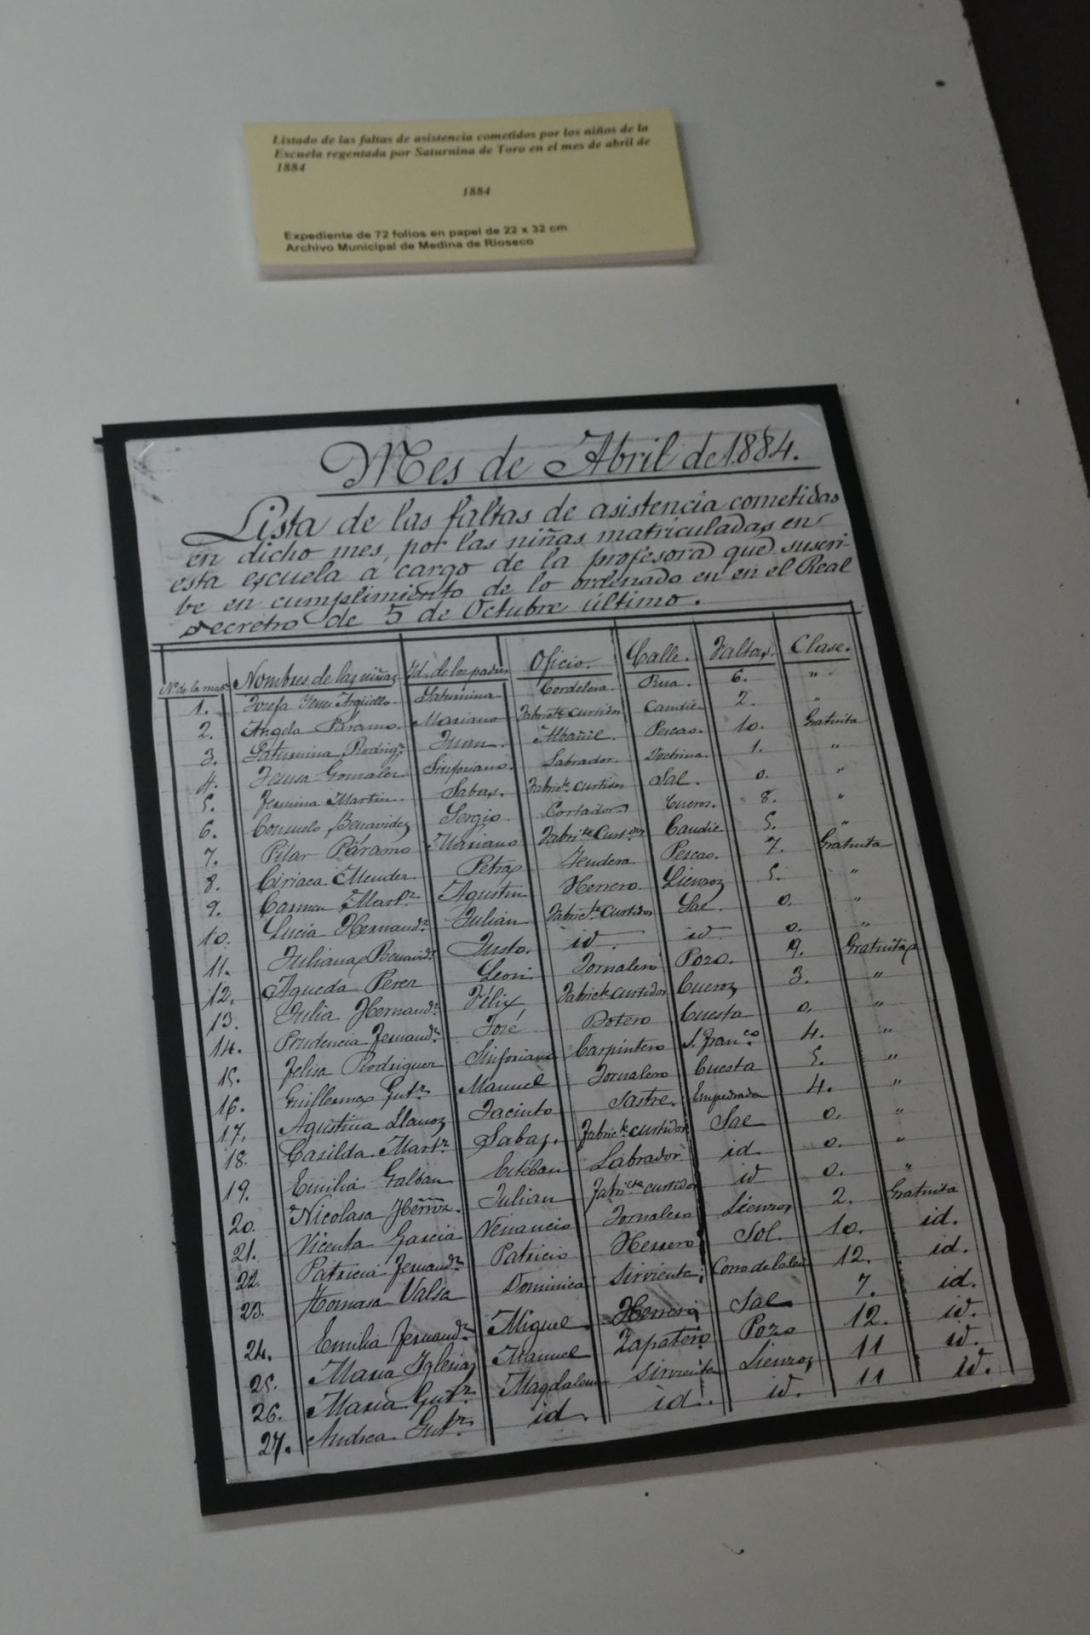 Listado de las faltas de asistencia cometidos por los niños de la
Escuela regentada por Saturnina de Toro en el mes de abril de
1884
1884
Expediente de 72 folios en papel de 22 x 32 cm
Archivo Municipal de Medina de Rioseco
Mes de Abril de 1884.
Lista de las faltas de asistencia cometidas
en dicho mes, por las niñas matriculadas en
esta escuela á cargo de la profesora que suscri-
be en cumplimiento de lo ordenado en en el Real
decreto de 5 de Octubre último.
Nº de la mat. Nombres de las niñas Id. de los padres Oficio. Calle. Faltas. Clase.
1. Josefa Argüello. Saturnina Cordelera. Rua. 6. "
2. Angela Páramo. Mariano Fabrite. Curtidos Candil 2. "
3. Saturnina Rodrigz. Juan. Albañil. Pescao. 10. Gratuita
4. Jesusa Gonzalez Sinforiano. Labrador. Doctrina. 1. "
5. Martin. Sabas. Fabrite. Curtidos Sal. 0. "
6. Consuelo Benavides Sergio. Cortador Cueros. 8. "
7. Pilar Páramo Mariano Fabrite Curtidos Candil 5. "
8. Ciriaca Mendez Petra Tendera Pescao. 7. Gratuita
9. Carmen Martz. Agustin Herrero. Lienzos 5. "
10. Lucia Hernandz. Julian Fabrite. Curtidos Sal. 0. "
11. Juliana Benavids Justo. id. id. 0. "
12. Agueda Perea Leon. Jornalero Pozo. 9. Gratuita
13. Julia Hernandz. Félix Fabrite. curtidos Cueros 3. "
14. Prudencia Fernandz. José Botero Cuesta 0. "
15. Felisa Rodriguez Sinforiano Carpintero S. Franco. 4. "
16. Guillerma Gutz. Manuel Jornalero Cuesta 5. "
17. Agustina Llanos Jacinto Sastre. Empedrada 4. "
18. Casilda Martz. Sabas. Fabrite. curtidos Sal 0. "
19. Emilia Galban Estéban Labrador id. 0. "
20. Nicolasa Julian Fabrite curtidos id 0. "
21. Vicenta Garcia Venancio Jornalero Lienzos 2. Gratuita
22. Patricia Fernandz. Patricio Herrero Sol. 10. id.
23. Tomasa Valsa Dominica Sirvienta 12. id.
24. Emilia Fernandz. Miguel Herrero Sal 7. id.
25. Maria Iglesias Manuel Zapatero Pozo 12. id.
26. Maria Gutz. Magdalena Sirvienta Lienzos 11 id.
27. Andrea Gutz. id. id. id. 11 id.